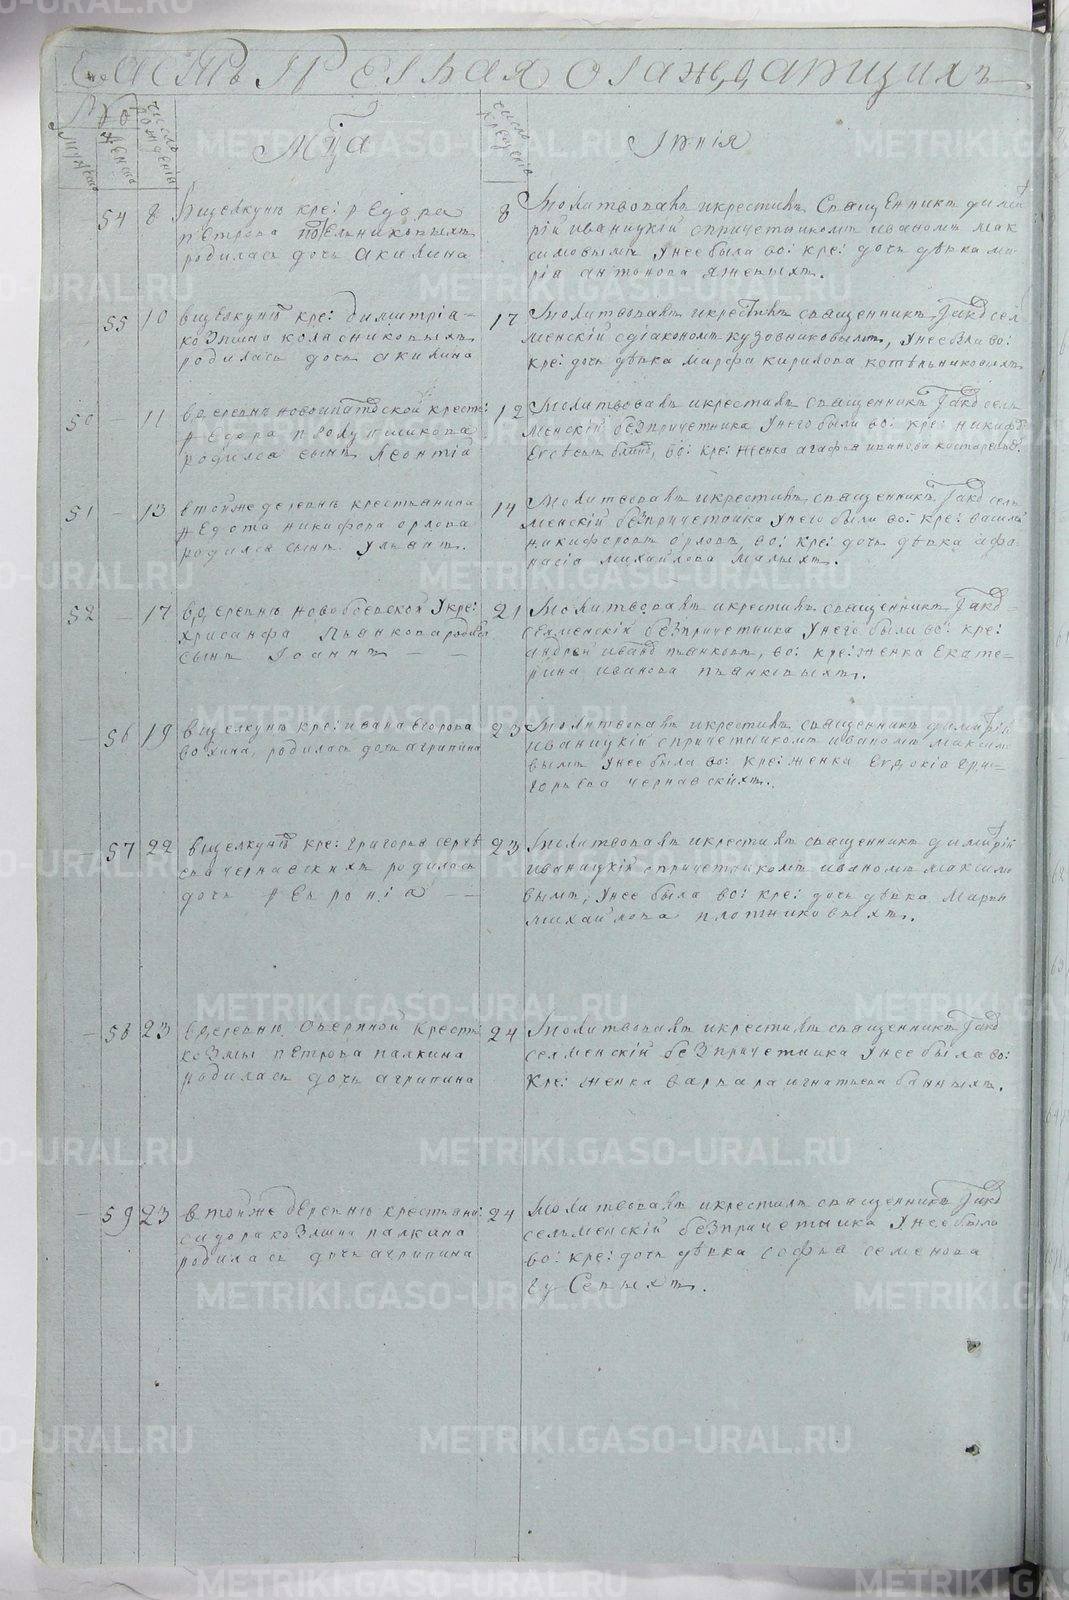 Часть третья о ражд,ающихъ
№
Мужеска
Женска
число рожденiя
Мца
число крещенiя
Iюнiя
54 8 Вщелкунѣ кре: Ѳедора
Петрова котельниковыхъ
родилась дочь акилина
8 Молитвовалъ икрестилъ Священникъ дими
рiй иваницкiй спричетникомъ иваномъ мак
симовымъ унее была во: кре: дочь дѣвка ма
рiя антонова
55 10 вщелкунѣ кре: димитрiа
козмина колясниковыхъ
родилась дочь акилина
17 Молитвовалъ икрестилъ священникъ Iаковъ сел
менскiй сдiакономъ кузовниковымъ, унее была во:
кре: дочь дѣвка марфа кирилова котельниковыхъ
50 — 11 вдеревнѣ новоипатовской крестя:
Ѳедора
родился сынъ Леонтiй
12 Молитвовалъ икрестилъ священникъ Iаковъ сель
менскiй безпричетника унего были во: кре: никифоръ
во: кре: женка агафья иванова
51 — 13 втойже деревнѣ крестьянина
Ѳедота никифорова орлова
родился сынъ Ульянъ.
14 Молитвовалъ икрестилъ священникъ Iаковъ сель
менскiй безпричетника унего были во: кре: василей
никифоровъ орловъ, во: кре: дочь дѣвка афа
насiя михайлова Малыхъ.
52 — 17 вдеревнѣ новобоевской укре:
хрисанфа пьянкова родился
сынъ Iоаннъ — —
21 Молитвовалъ икрестилъ священникъ Iаковъ
селменскiй безпричетника унего были во: кре:
андрей ивановъ пьянковъ, во: кре: женка Екате
рина иванова пьянковыхъ.
— 56 19 вщелкунѣ кре: ивана егорова
вохмина, родилась дочь агрипина
23 Молитвовалъ икрестилъ священникъ димитрiй
иваницкiй спричетникомъ иваномъ максимо
вымъ унее была во: кре: женка Евдокiа григ
горьева чернавскихъ.
— 57 22 вщелкунѣ кре: григорья сергѣ
ева чернавскихъ родилась
дочь Ѳевронiа —
23 Молитвовалъ икрестилъ священникъ димитрiй
иваницкiй спричетникомъ иваномъ максимо
вымъ, унее была во: кре: дочь дѣвка Марья
михайлова плотниковыхъ.
— 58 23 вдеревню Озерной крестя:
козмы петрова палкина
родилась дочь агрипина
24 Молитвовалъ икрестилъ священникъ Iаковъ
селменскiй безпричетника унее была во:
кре: женка варвара игнатьева банныхъ.
— 59 23 втойже деревню крестьяни:
сидора козмина палкина
родилась дочь агрипина
24 Молитвовалъ икрестилъ священникъ Iаковъ
сельменскiй безпричетника унее была
во: кре: дочь дѣвка софья семенова
METRIKI.GASO-URAL.RU